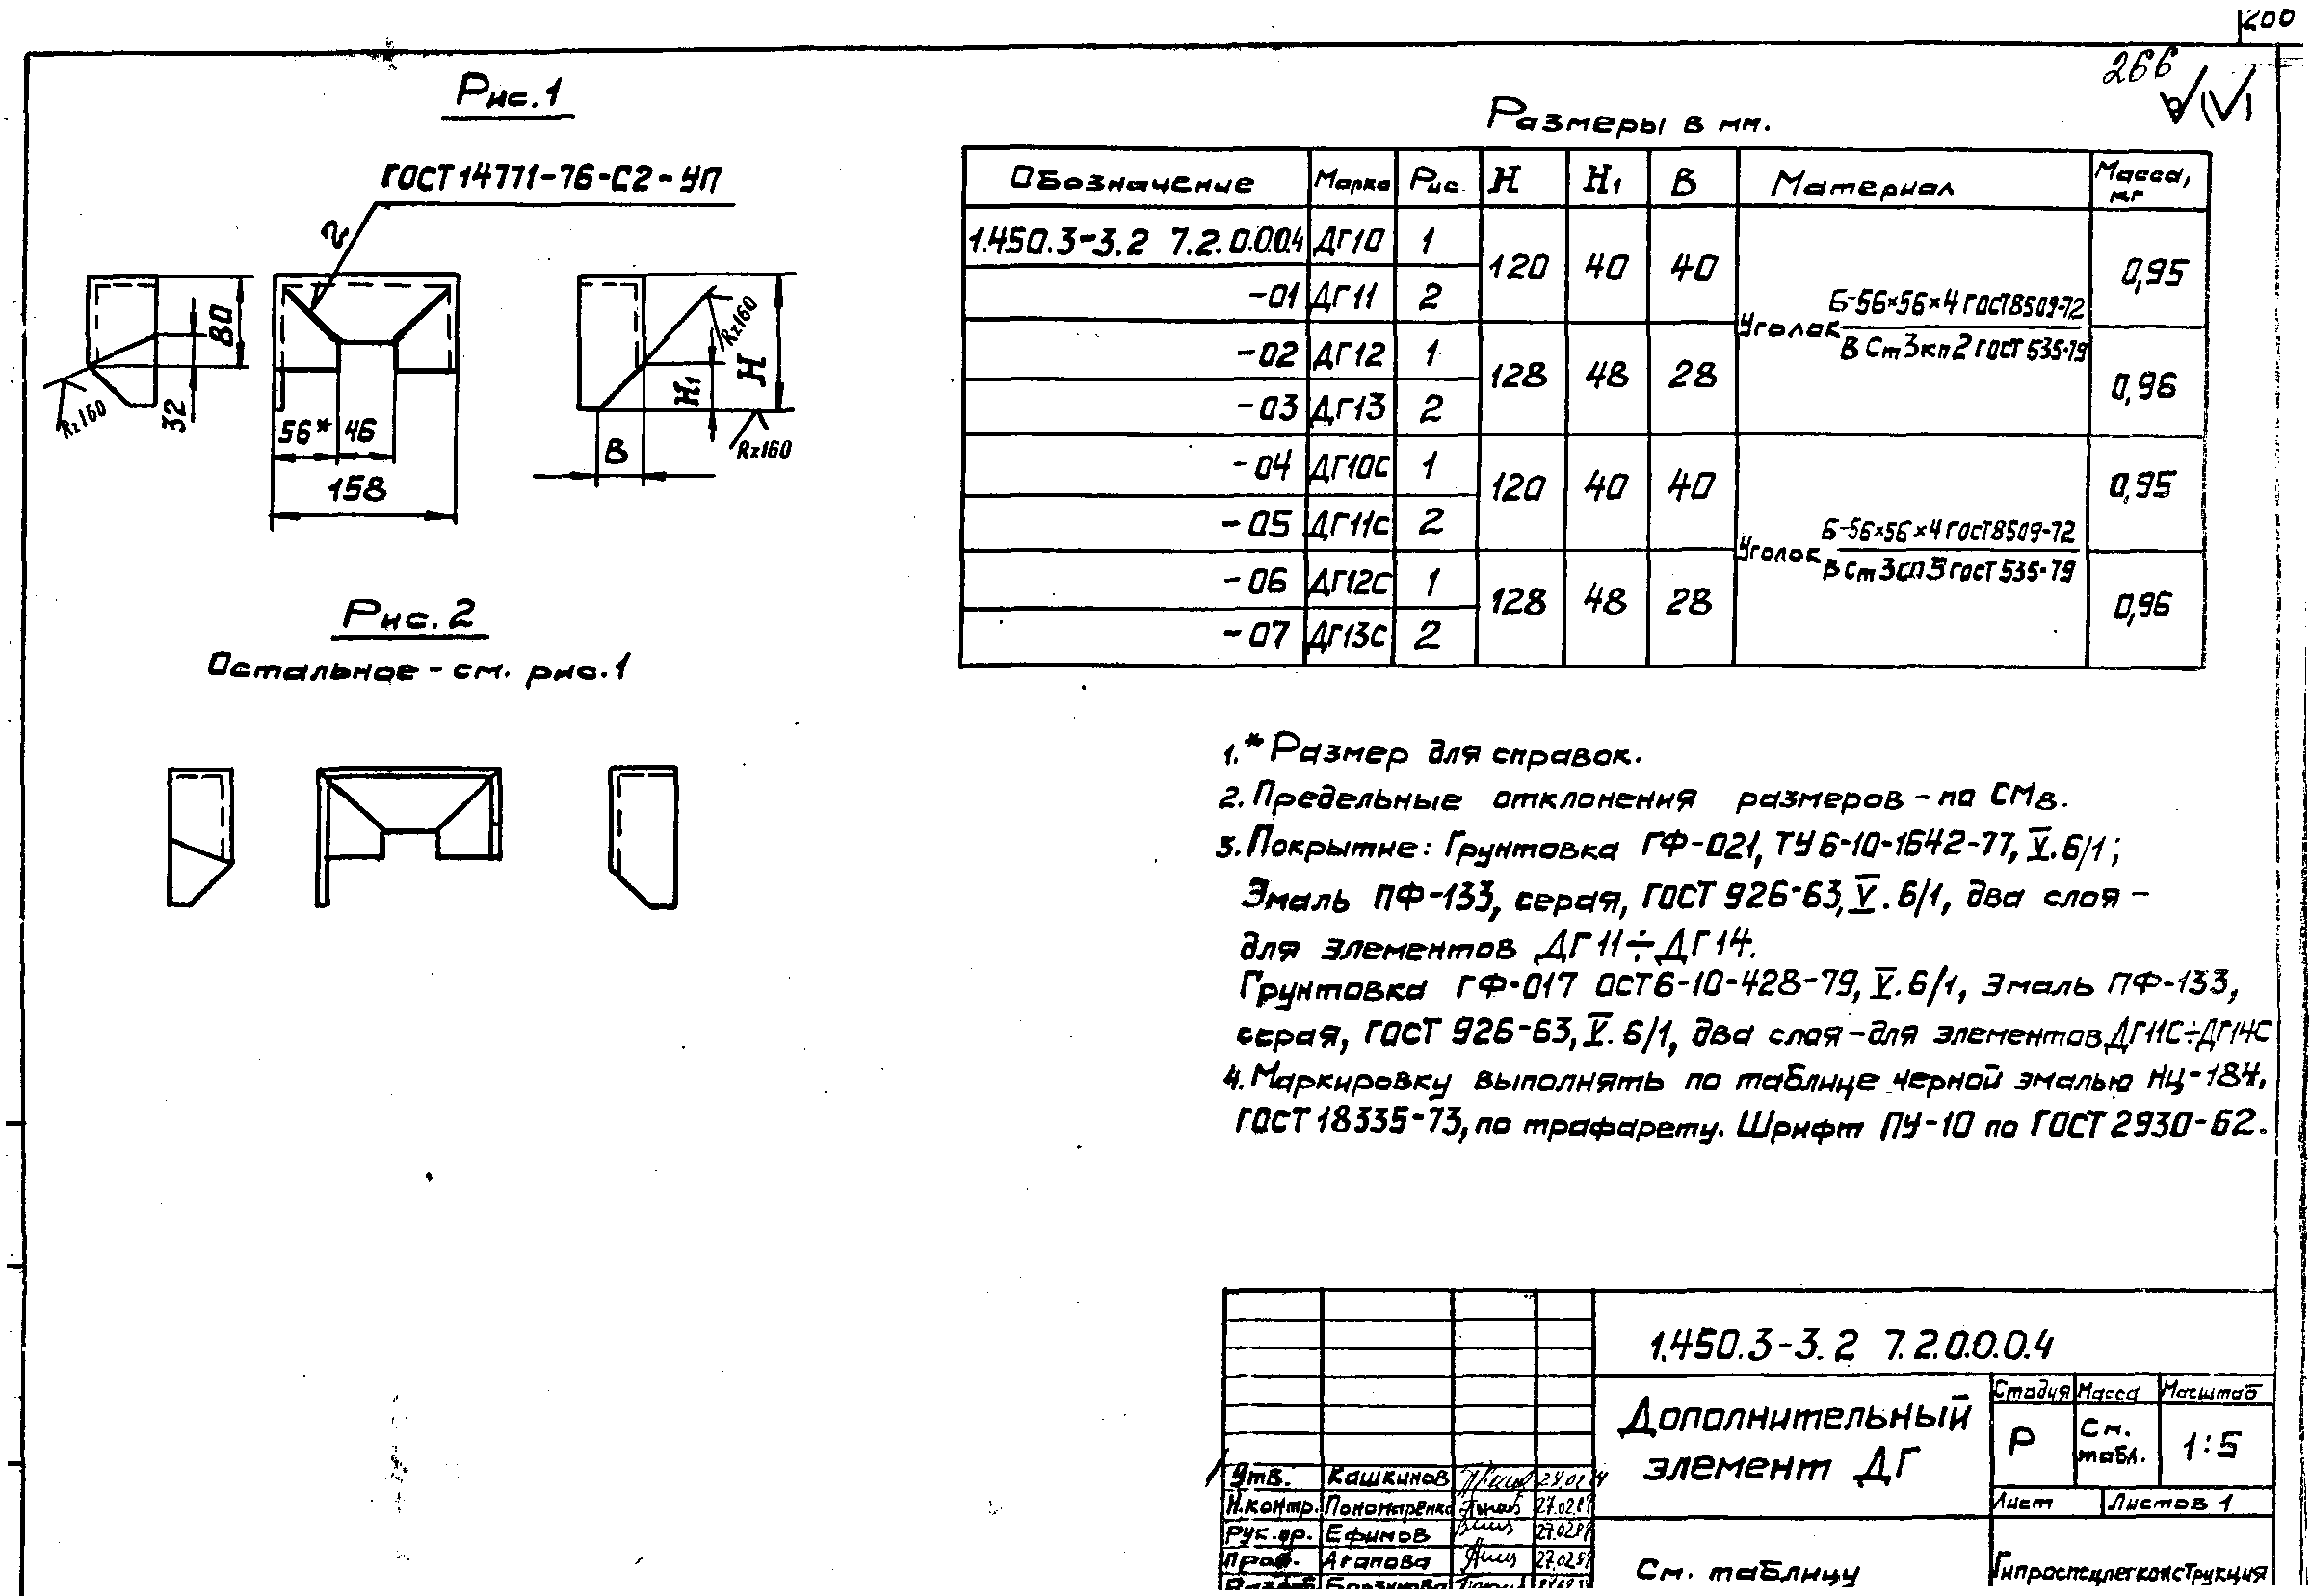 200
266
Рис.1
ГОСТ 14771-76-С2-УП
2
80
32
Rz160
56* 46
158
Rz160
H1
H
B
Rz160
Рис.2
Остальное - см. рис.1
Размеры в мм.
Обозначение Марка Рис. H H1 B Материал Масса, кг
1.450.3-3.2 7.2.0.0.0.4 ДГ10 1 120 40 40 0,95
-01 ДГ11 2
-02 ДГ12 1 128 48 28 0,96
-03 ДГ13 2
Уголок Б-56×56×4 ГОСТ 8509-72
В Ст3кп2 ГОСТ 535-79
-04 ДГ10С 1 120 40 40 0,95
-05 ДГ11С 2
-06 ДГ12С 1 128 48 28 0,96
-07 ДГ13С 2
Уголок Б-56×56×4 ГОСТ 8509-72
В Ст3сп5 ГОСТ 535-79
1.* Размер для справок.
2. Предельные отклонения размеров - по СМ8.
3. Покрытие: Грунтовка ГФ-021, ТУ 6-10-1642-77, V.6/1;
Эмаль ПФ-133, серая, ГОСТ 926-63, V.6/1, два слоя -
для элементов ДГ11÷ДГ14.
Грунтовка ГФ-017 ОСТ 6-10-428-79, V.6/1, Эмаль ПФ-133,
серая, ГОСТ 926-63, V.6/1, два слоя - для элементов ДГ11С÷ДГ14С
4. Маркировку выполнять по таблице черной эмалью НЦ-184.
ГОСТ 18335-73, по трафарету. Шрифт ПУ-10 по ГОСТ 2930-62.
1.450.3-3.2 7.2.0.0.0.4
Дополнительный
элемент ДГ
Стадия Масса Масштаб
Р См. табл. 1:5
Лист Листов 1
Утв. Кашкинов
Н.контр. Пономаренко
Рук.гр. Ефимов
Пров. Агапова
См. таблицу
Гипроспецлегконструкция